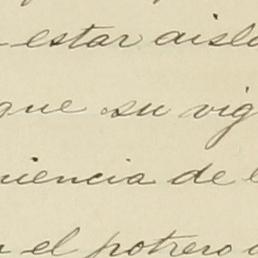 estar aisla
que su vig
niencia de l
n el potrero